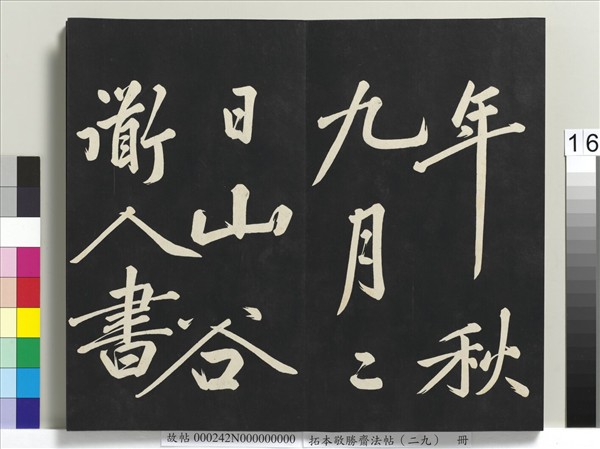 年秋
九月二
日山谷
衜人書
16
故帖 000242N000000000 拓本敬勝齋法帖（二九） 冊